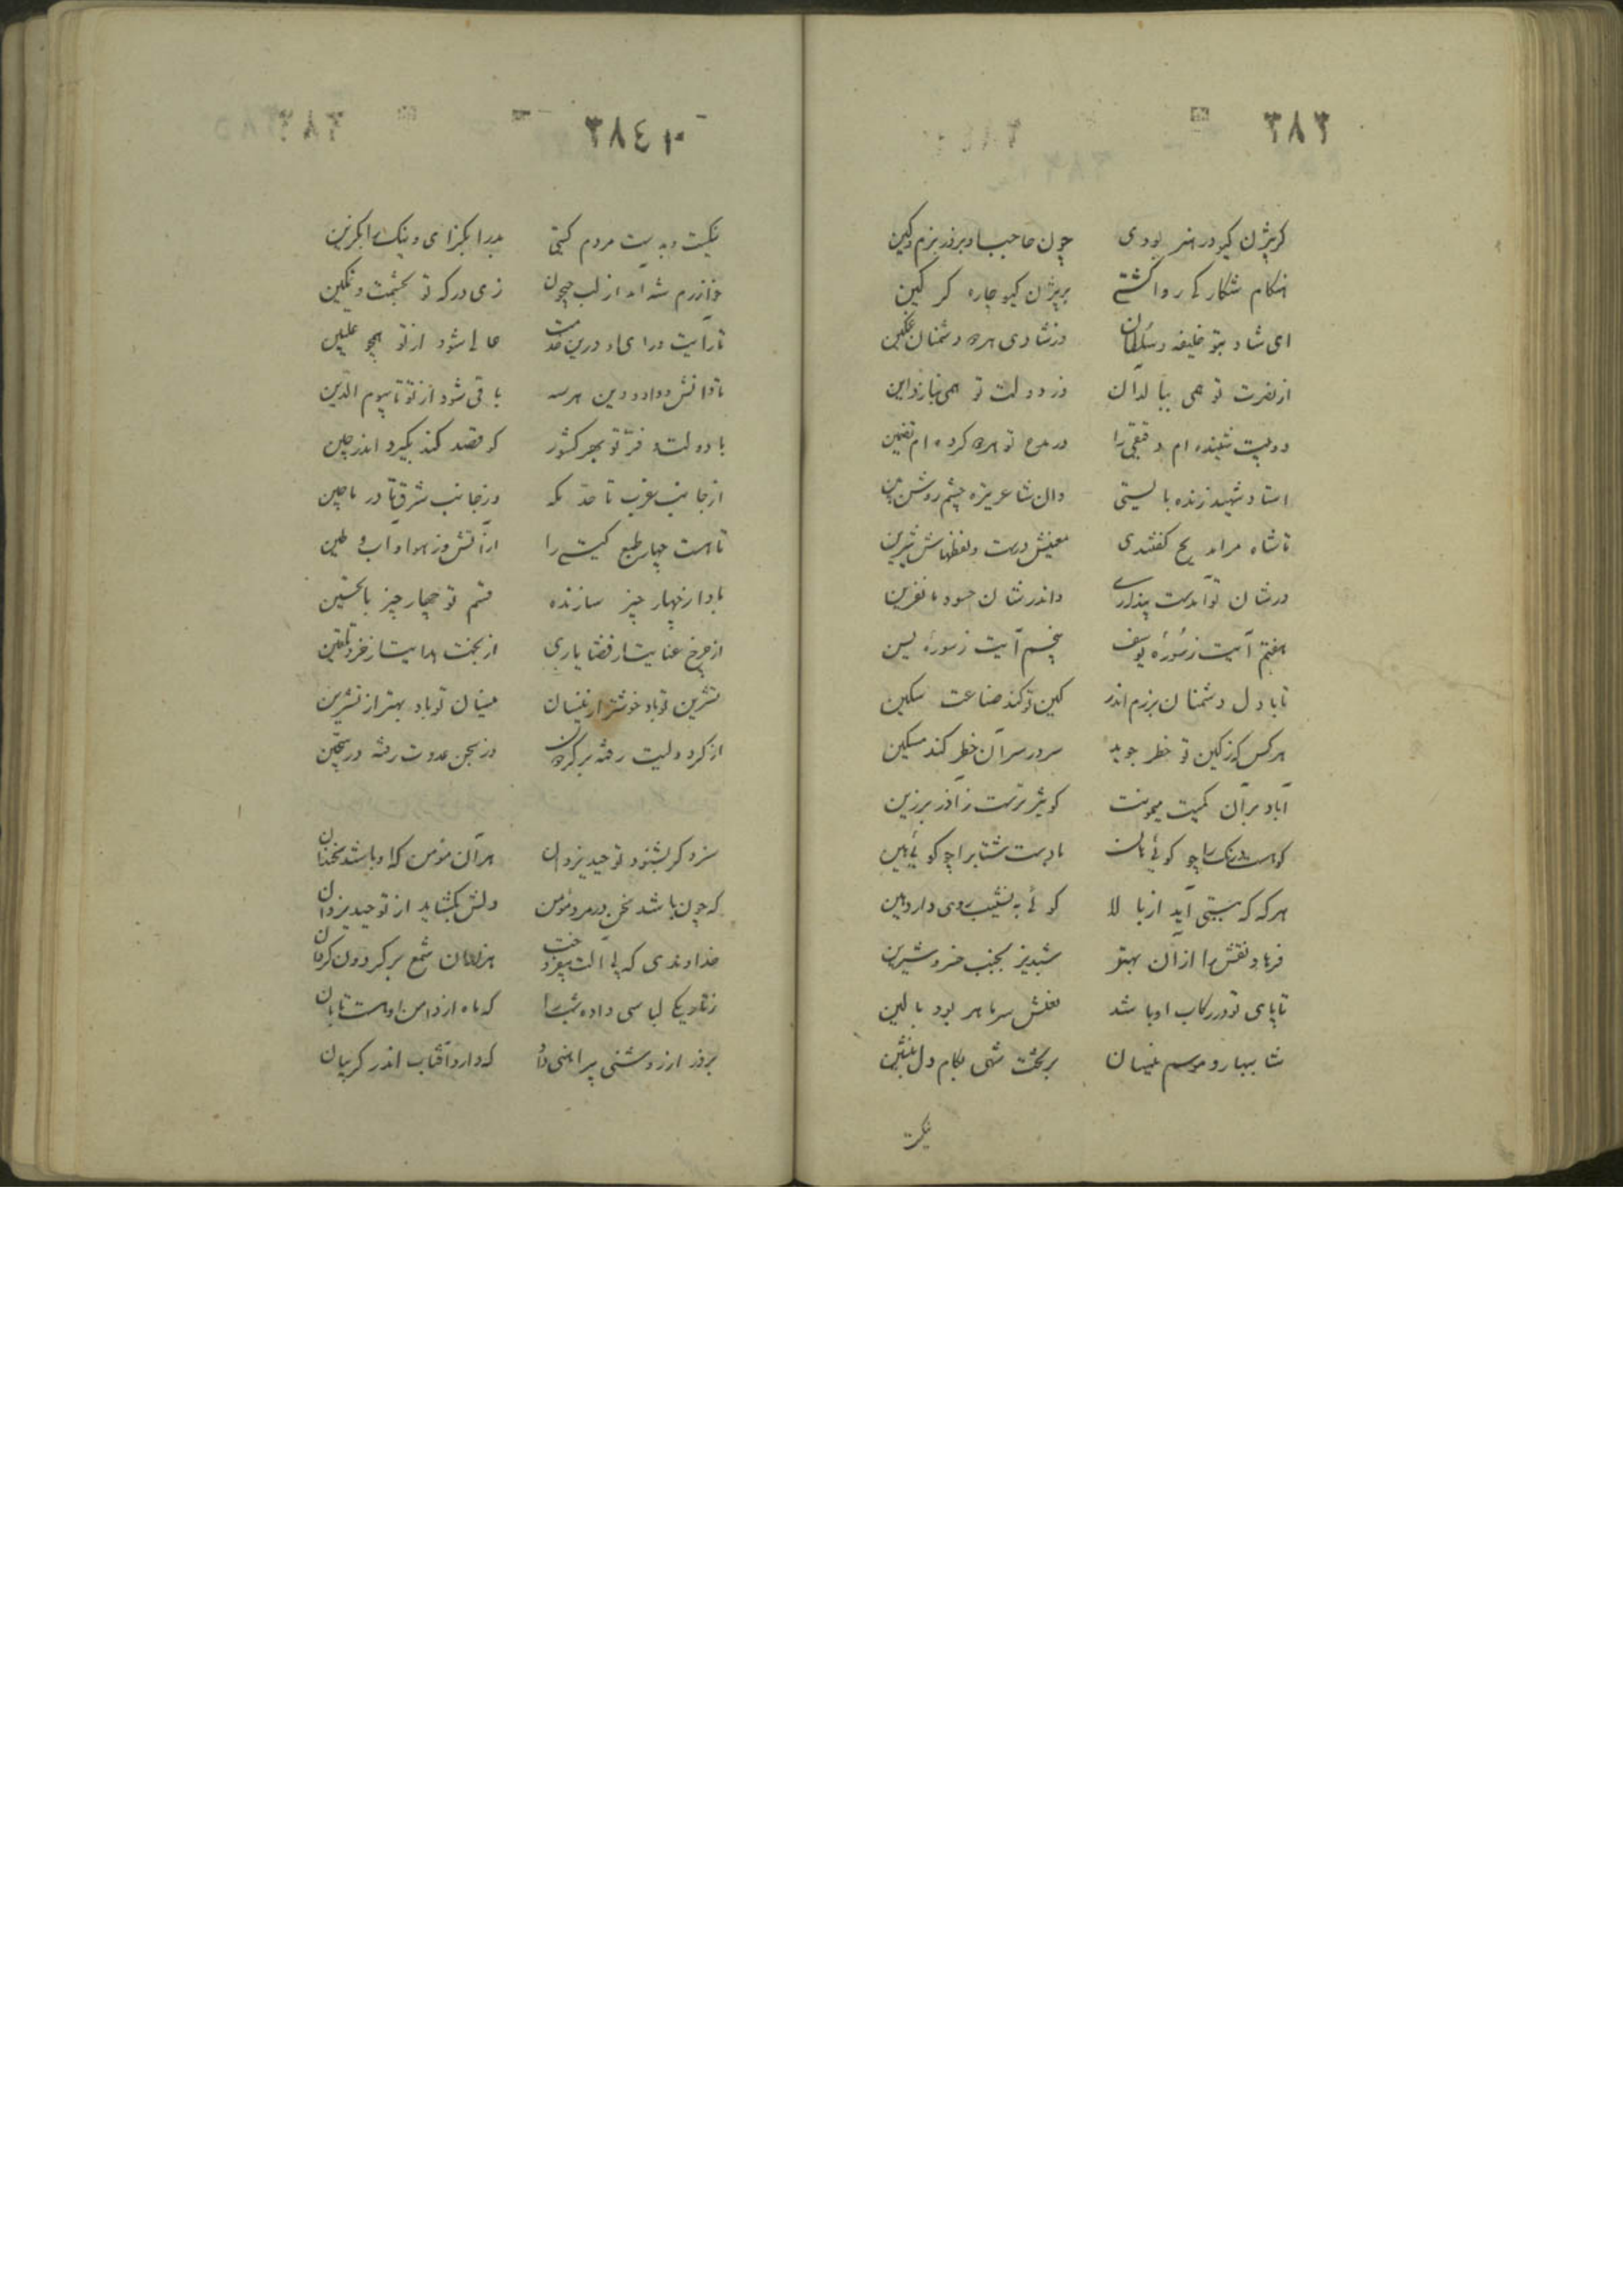 ۳۸۳
کر بیژن کیو در هنر بودی چون حاجب او بروز بزم و کین
هنکام شکار کی روا کشتی بر بیژن کیو چاره کرکین
ای شاد بتو خلیفه و سلطان وز شادی هر دو دشمنان غمکین
از نصرت تو همی ببالد آن وز دولت تو همی بنازد این
دو بیت شنیده ام دقیقی را در مدح تو هر دو کرده ام تضمین
استاد شهید زنده بایستی وان شاعر تیره چشم روشن بین
تا شاه مرا مدیح کفتندی معنیش درست و لفظهاش شیرین
در شان تو آمدست پنداری واندر شان حسود با نفرین
هفتم آیت ز سورهٔ یوسف پنجم آیت ز سورهٔ یس
تا با دل دشمنان برزم اندر کین تو کند صناعت سکین
هر کس که ز کین تو خطر جوید سر در سر آن خطر کند مسکین
آباد بر آن کمیت میمونت کو تیزترست ز آذر برزین
کوهست درنک را چو کوئی بادست شتاب را چو کوئی هین
هر که که بپستی آید از بالا کوئی به نشیب روی دارد هین
فرهاد نقش را از آن بهتر شبدیز بجنب خسرو شیرین
تا پای تو در رکاب او باشد نعلش سر ماه بود بالین
شاها بهار و موسم نیسان بر تخت شهی بکام دل بنشین
نیکست
۳۸٤
نیکست و بدیست مردم کیتی بد را بکزای و نیک را بکزین
خوارزم شه آمد از لب جیحون زی درکه تو بحشمت و تمکین
تا رایت و رای او درین خدمت عالی شود از تو همچو علیین
تا دانش و داد و دین هر سه باقی شود از تو تا بیوم الدین
با دولت و فر تو بهر کشور کو قصد کند بکیرد اندر حین
از جانب غرب تا حد مکه وز جانب شرق تا در ماچین
تا هست چهار طبع کیتی را از آتش وز هوا و آب و طین
بادا ز چهار چیز سازنده قسم تو چهار چیز با تحسین
از چرخ عنایت از قضا یاری از بخت هدایت از خرد تلقین
تشرین تو باد خوشتر از نیسان نیسان تو باد بهتر از تشرین
از کرد ولیت رفته بر کردون وز سجن عدوت رفته در سجین
سزد کر بشنود توحید یزدان هر آن مؤمن که او باشد سخندان
که چون باشد سخن در مرد مؤمن دلش بکشاید از توحید یزدان
خداوندی که بی آلت برافروخت هزاران شمع بر کردون کردان
ز تاریکی لباسی داده شب را که ماه از دامن اوست تابان
بروز از روشنی پیراهنی داد که دارد آفتاب اندر کریبان